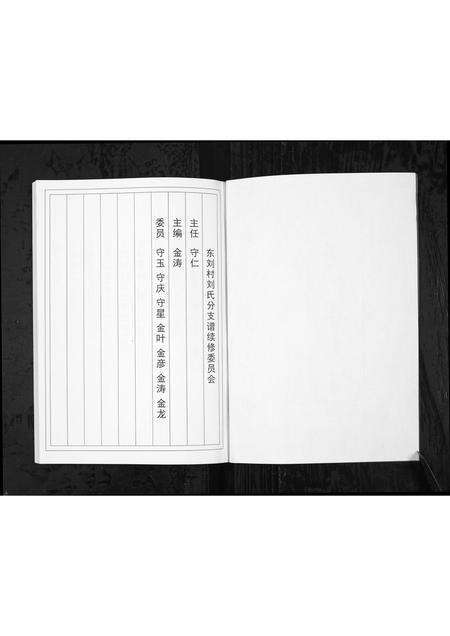 东刘村刘氏分支谱续修委员会
主任 守仁
主编 金涛
委员 守玉 守庆 守星 金叶 金彦 金涛 金龙